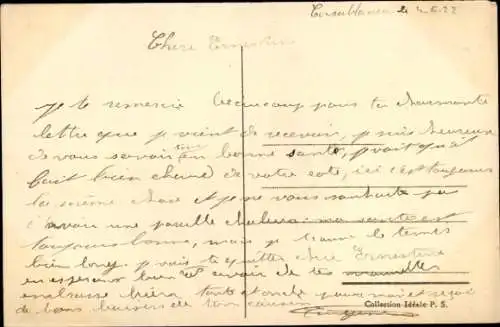 Casablanca le 4.6.22
Chere Ernestine
je te remercie beaucoup pour ta charmante
lettre que je vient de recevoir, je suis heureuse
de vous savoir tous en bonne santé, je voit qu'il
fait bien chaud de votre coté, ici c'est toujours
la même chose et je ne vous souhaite pas
d'avoir une pareille chaleur ma santé est
toujours bonne, mais je trouve le temps
bien long. je vais te quitter chere Ernestine
en esperant bien avoir de tes nouvelles
embrasse bien toute le monde pour moi et reçois
de bons baisers de ton cousin
Collection Idéale P. S.